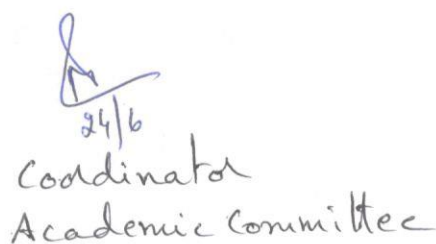 24/6
Coordinator
Academic Committee